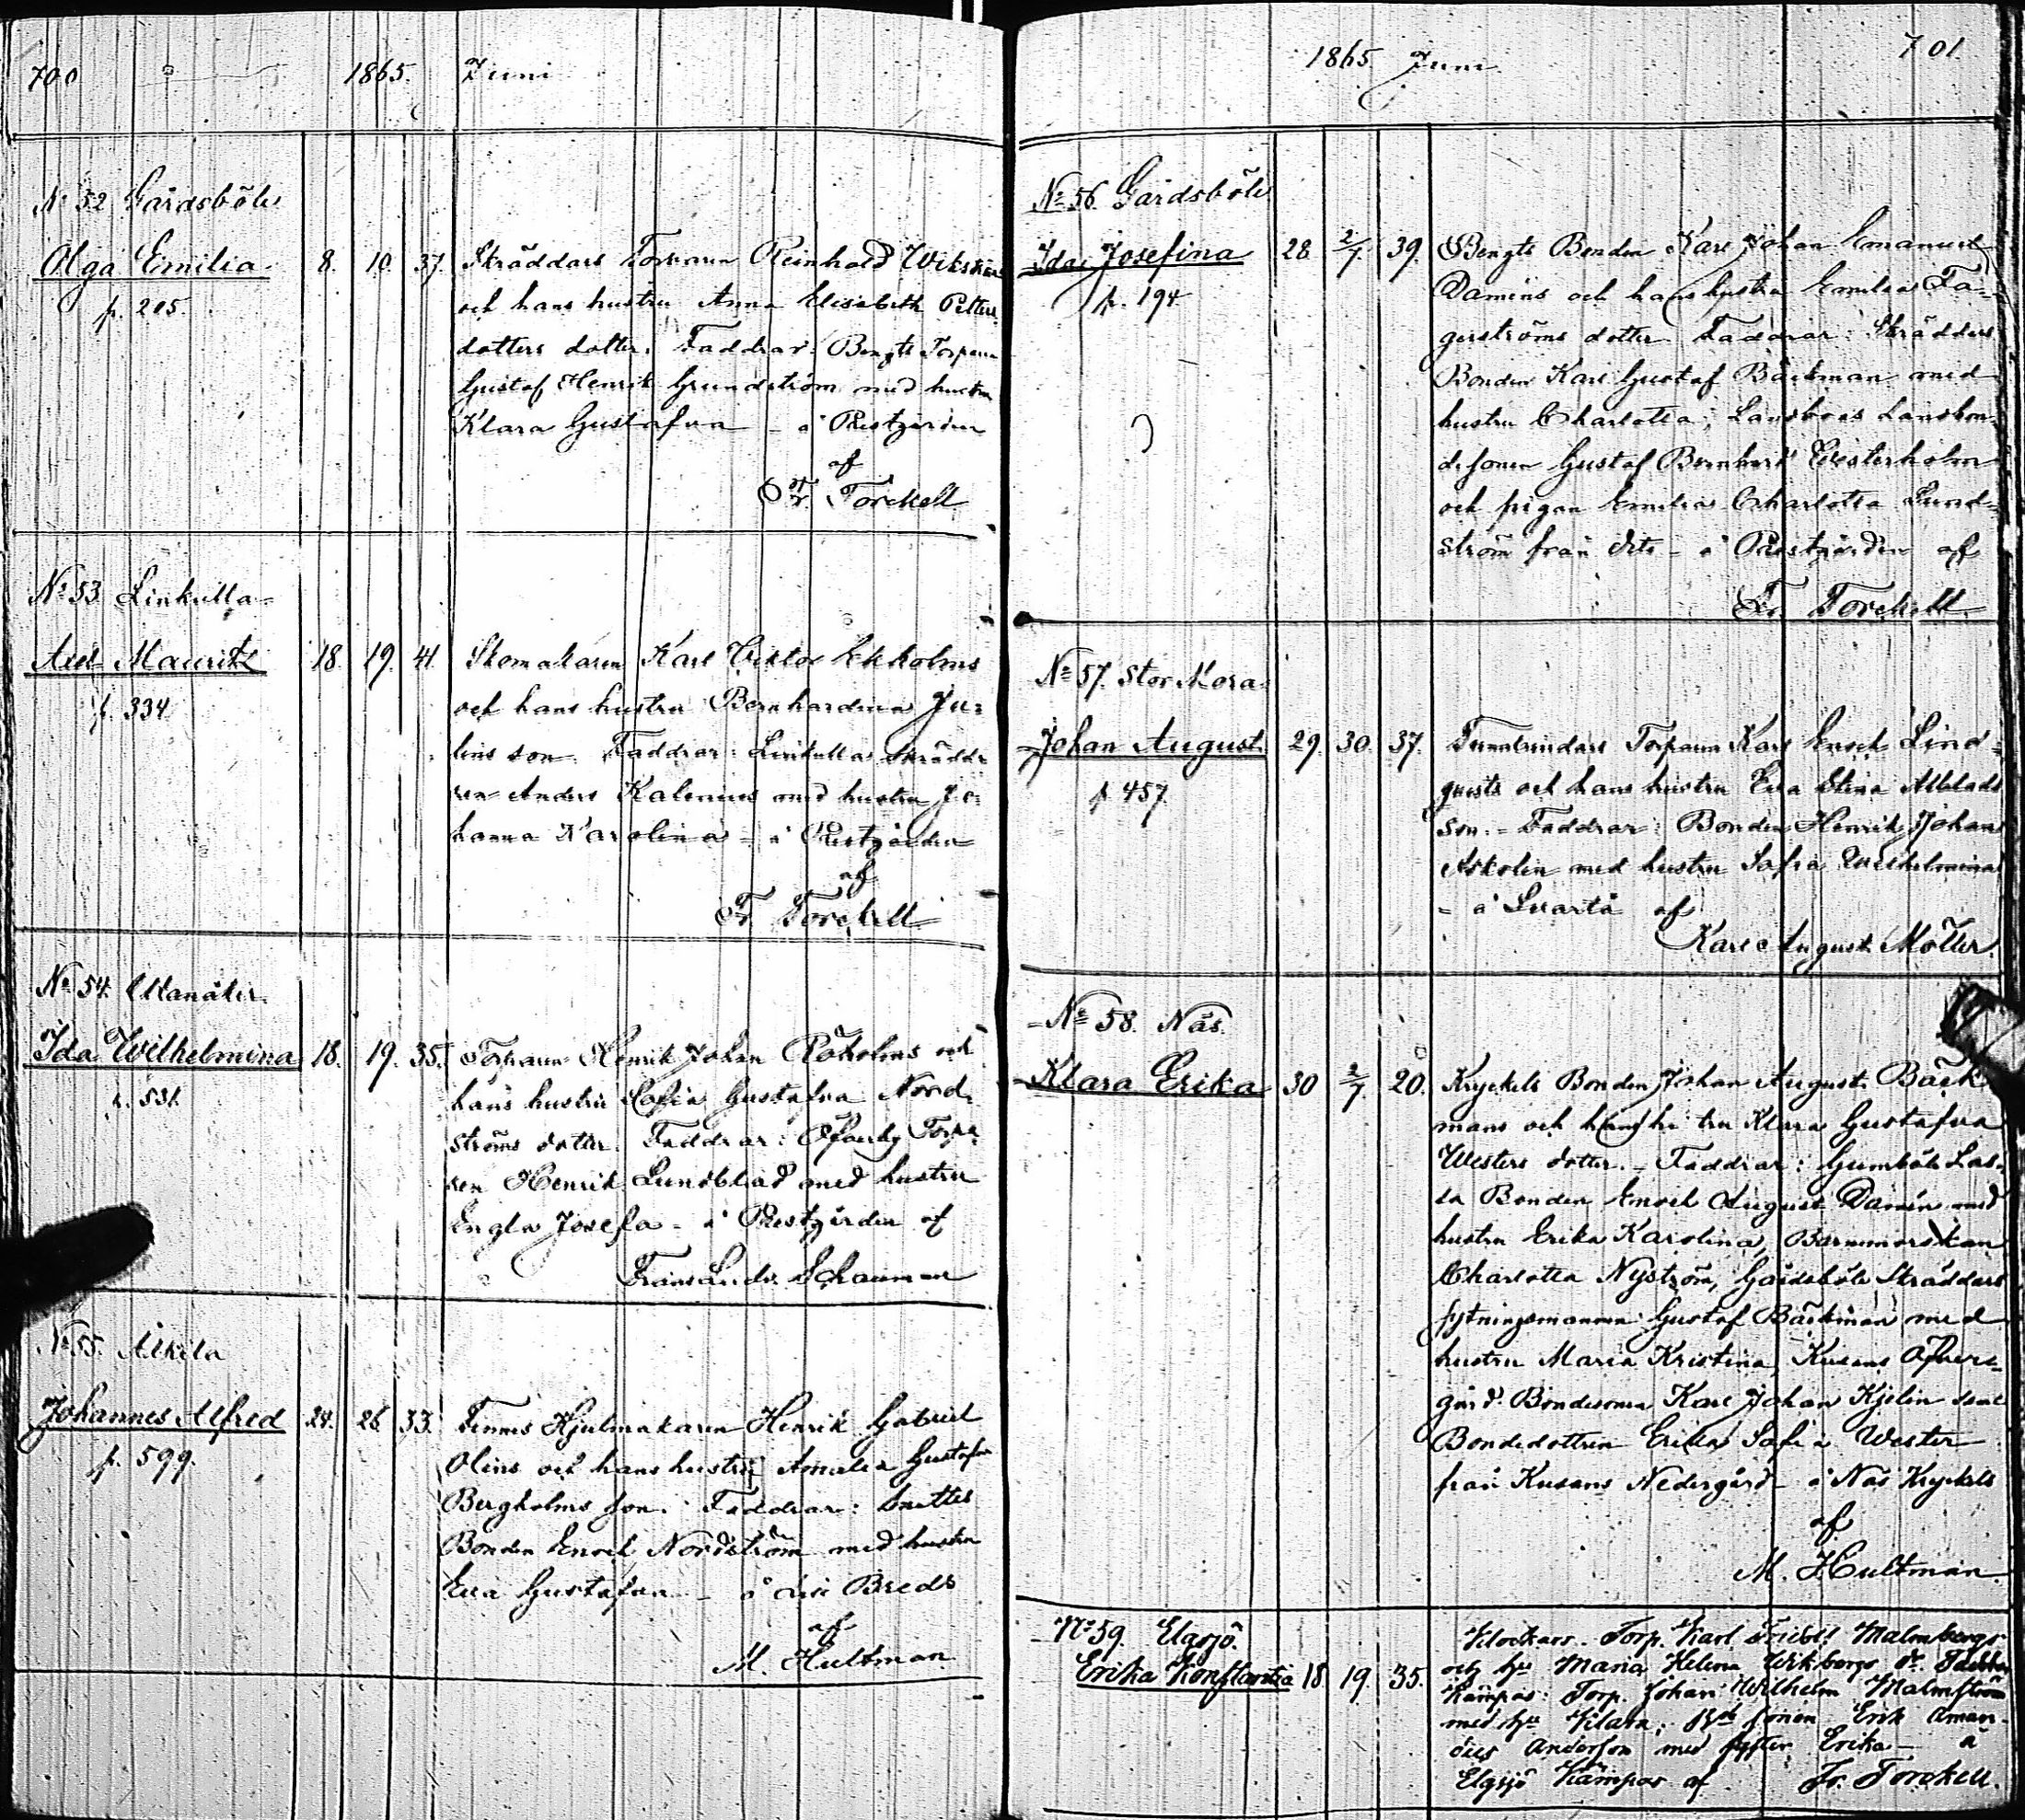 700 1865. Juni
No 52 Gårdsböle
Olga Emilia 8. 10. 37. Skräddars Torparen Reinhold
p. 205. och hans hustru Anna Elisabeth Petters
dotters dotter. Faddrar: Bengts Torparen
Gustaf Henrik Grundström med hustru
Klara Gustafva – å Prestgården
af
Fr. Torckell
No 53. Linkulla
Axel Mauritz 18. 19. 41. Skomakaren Karl Viktor Ekholms
p. 334. och hans hustru Bernhardina Ju=
lins son. Faddrar: Linkulla Skrädda=
ren Anders Kalenius med hustru Jo=
hanna Karolina – å Prestgården
af
Fr. Torckell
No 54.
Ida Wilhelmina 18. 19. 35. Torparen Henrik Johan och
p. 531. hans hustru Sofia Gustafva Nord=
ströms dotter. Faddrar: Öfverby Torpa=
ren Henrik Lundblad med hustru
Engla Josefa – å Prestgården af
Frans Ludv. Schauman
No 55.
Johannes Alfred 24. 26. 33. Hjulmakaren Henrik Gabriel
p. 599. Olins och hans hustru Amalia Gustafva
Bergholms son. Faddrar:
Bonden Enoch Nordström med hustru
Eva Gustafva – å
af
M. Hultman
1865 Juni 701.
No 56. Gårdsböle
Ida Josefina 28. 2/7. 39. Bengts Bonden Karl Johan Emanuel
p. 194 Damins och hans hustru Emilia Fa=
gerströms dotter. Faddrar: Skräddars
Bonden Karl Gustaf Bäckman med
hustru Charlotta; Landbon=
desonen Gustaf Bernhard Westerholm
och pigan Emilia Charlotta Lund=
ström från – å Prestgården af
Fr. Torckell
No 57. Stor Mora
Johan August 29. 30. 37. Torparen Karl Enoch Lind=
p 457. qvists och hans hustru Eva Stina
son. – Faddrar: Bonden Henrik Johan
Askolin med hustru Sofia Wilhelmina
– å Svartå af
Karl August Möller.
No 58. Näs.
Klara Erika 30 2/7. 20. Kryckels Bonden Johan August Bäck=
mans och hans hustru Klara Gustafva
Westers dotter. – Faddrar: Gumböle Las=
sa Bonden Enoch August Damén med
hustru Erika Karolina, Barnmorskan
Charlotta Nyström, Gårdsböle Skräddars
sytningsmannen Gustaf Bäckman med
hustru Maria Kristina, Kusans Öfvers=
gård Bondesonen Karl Johan Kjelin samt
Bondedottren Erika Sofia Wester
från Kusans Nedergård – å Näs Kryckels
af
M. Hultman.
No 59. Elgsjö. Klockars Torp. Karl Fredr. Malmbergs
Erika Konstantia 18. 19. 35. och hu Maria Helena Wikbergs dr.
Kämpas Torp. Johan Wilhelm Malmström
med hu Klara; sonen Erik Aman=
dus Anderson med syster Erika – å
Elgsjö Kämpas af Fr. Torckell.